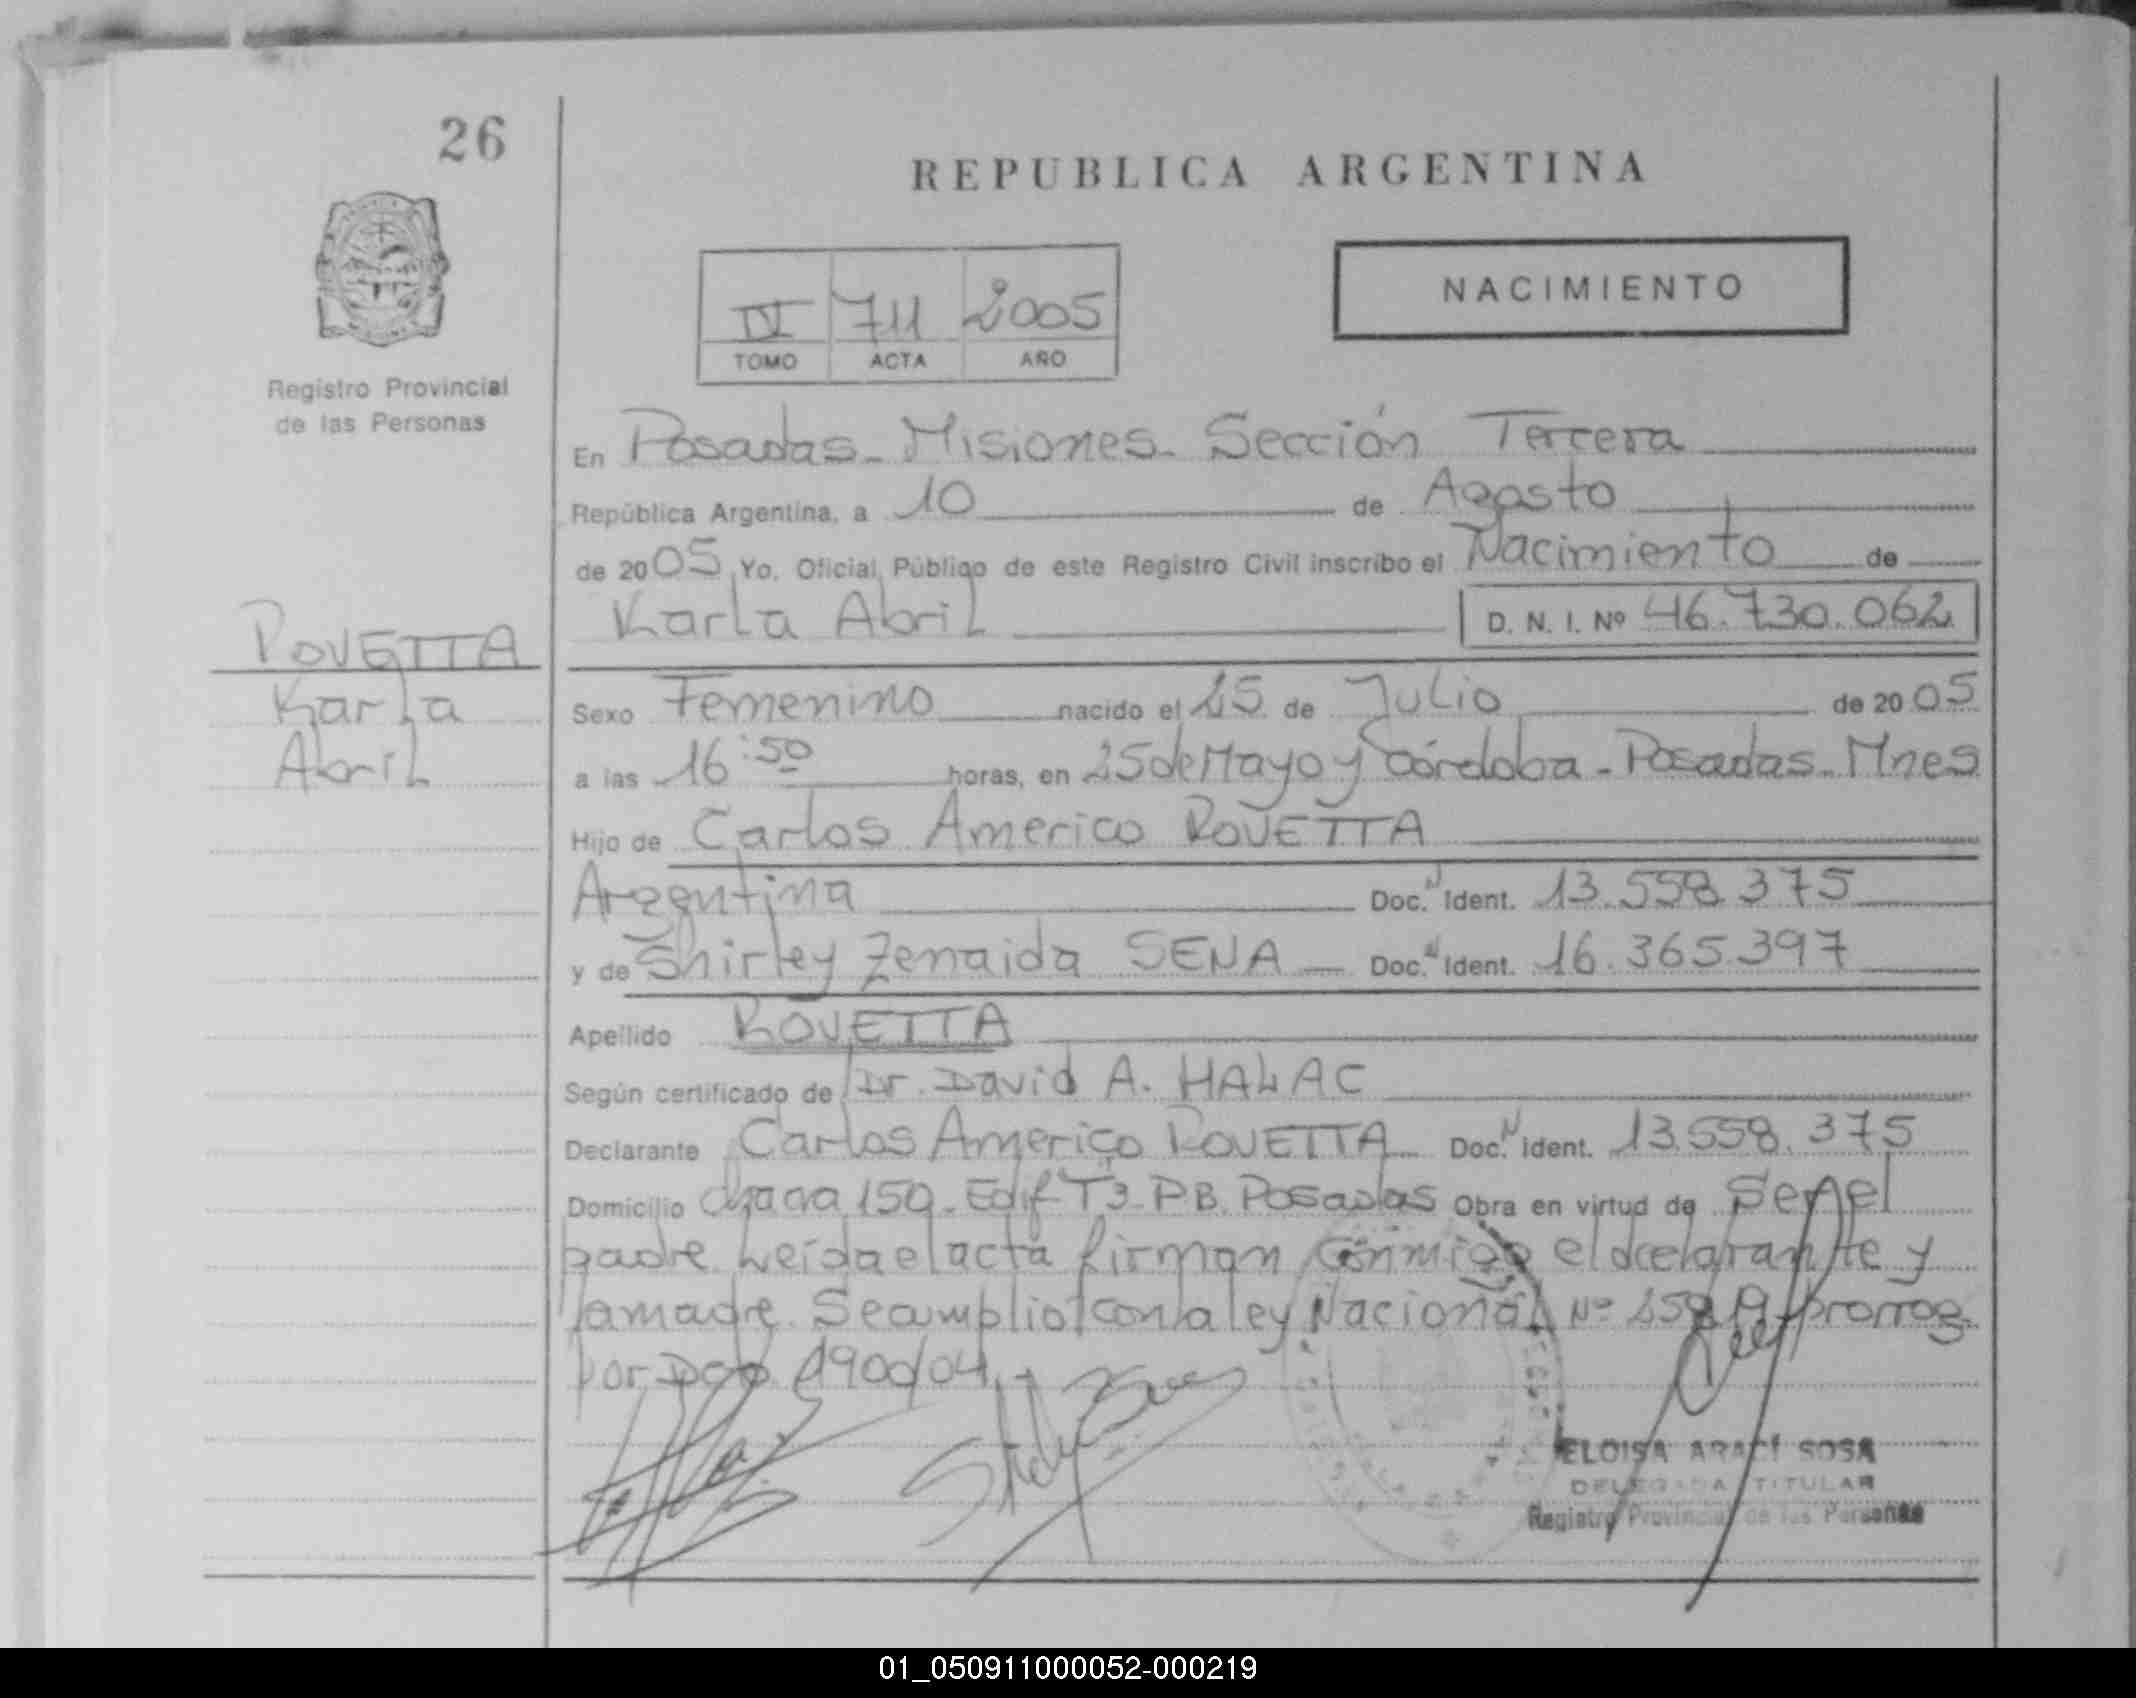 26
REPUBLICA ARGENTINA
NACIMIENTO
IV 711 2005
TOMO ACTA AÑO
Registro Provincial
de las Personas
En Posadas - Misiones - Sección Tercera
República Argentina, a 10 de Agosto
de 2005 Yo, Oficial Público de este Registro Civil inscribo el Nacimiento de
Karla Abril D. N. I. Nº 46.730.062
ROVETTA
Karla
Abril
Sexo Femenino nacido el 25 de Julio de 2005
a las 16:50 horas, en 25 de Mayo y Córdoba - Posadas - Mnes
Hijo de Carlos Americo ROVETTA
Argentina Doc. N Ident. 13.558.375
y de Shirley Zenaida SENA Doc. N Ident. 16.365.397
Apellido ROVETTA
Según certificado de Dr. David A. HALAC
Declarante Carlos Americo ROVETTA Doc. N Ident. 13.558.375
Domicilio chacra 150 - Edif T3 - PB. Posadas Obra en virtud de Ser el
padre. Leída el acta firman conmigo el declarante y
la madre. Se cumplio con la ley Nacional Nº prorrog.
por Dcto 1900/04.
ELOISA ARACÍ SOSA
DELEGADA TITULAR
Registro Provincial de las Personas
01_050911000052-000219